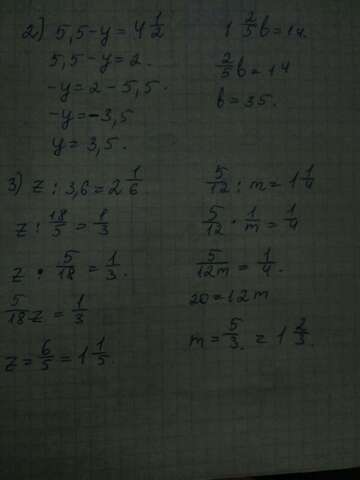 2) 5,5-y=4 1/2
5,5-y=2.
-y=2-5,5.
-y=-3,5
y=3,5.
1 2/5 b=14.
2/5 b=14
b=35.
3) z:3,6=2 1/6
z:18/5=1/3
z·5/18=1/3.
5/18 z=1/3
z=6/5=1 1/5
5/12:m=1 1/4
5/12·1/m=1/4
5/12m=1/4.
20=12m
m=5/3.=1 2/3.